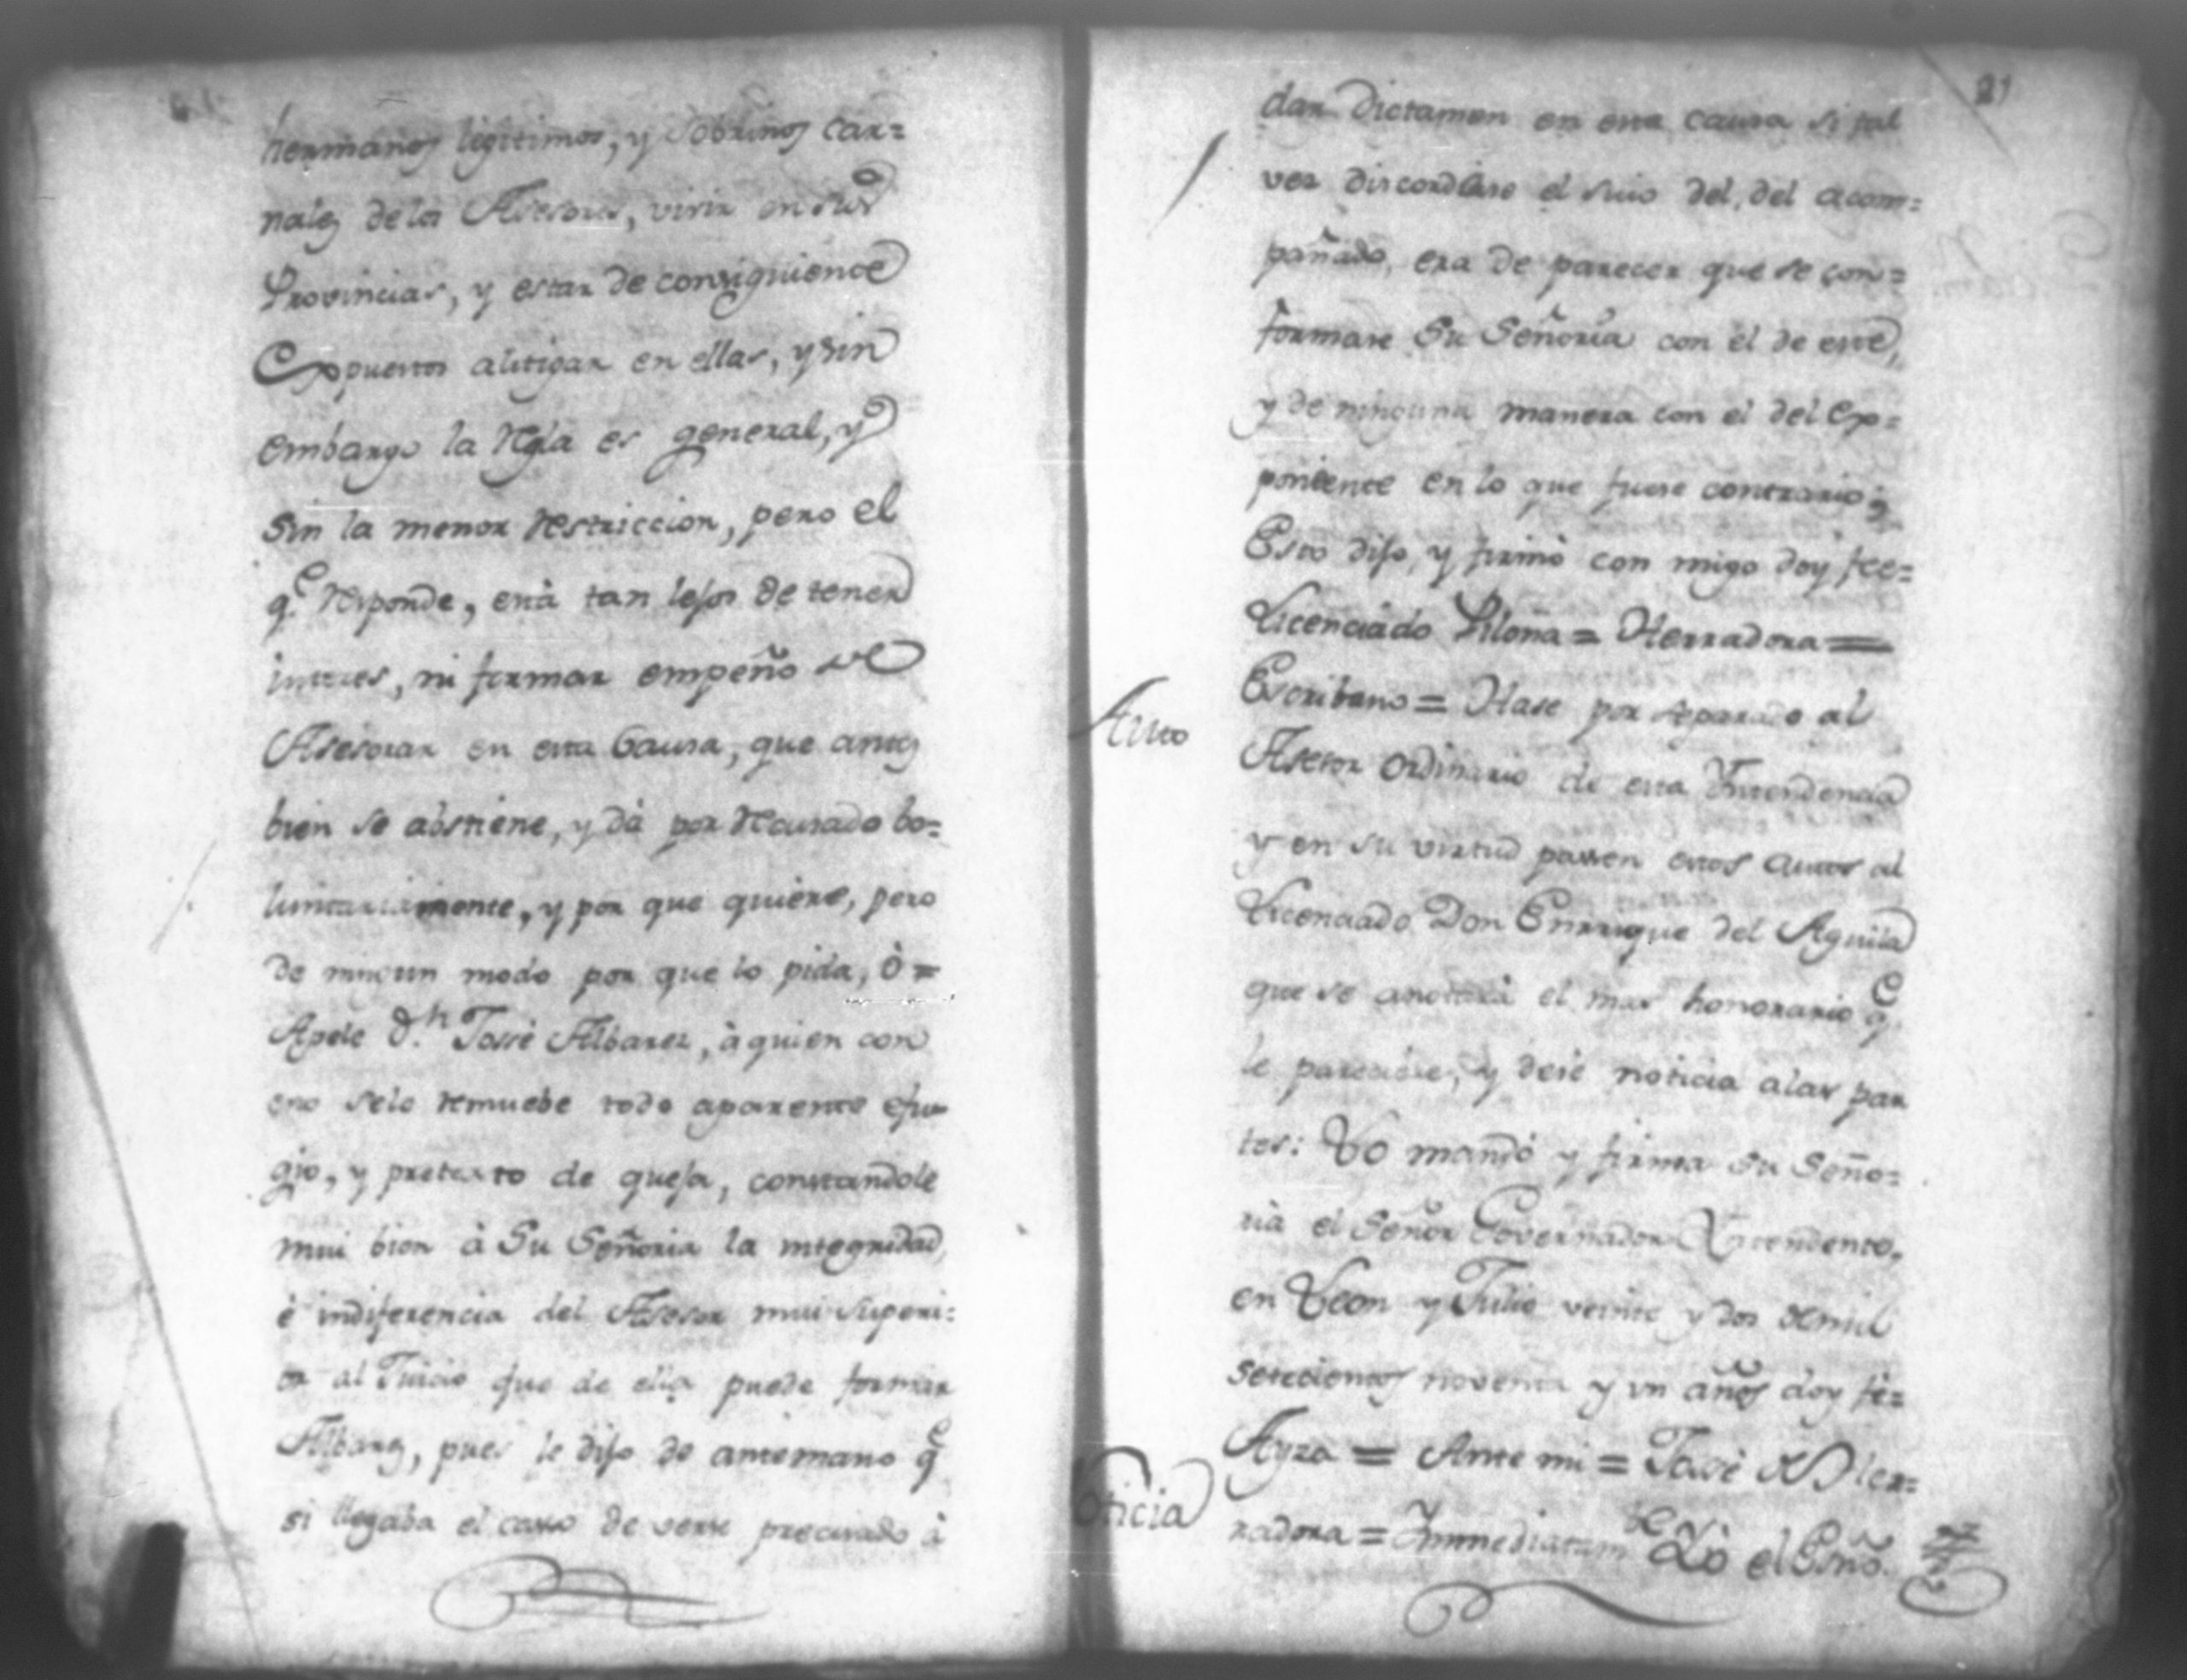 hermanos legitimos, y sobrinos car=
nales delos Asesores, vivir en sus
Provincias, y estar de consiguiente
Exppuestos alitigar en ellas, y sin
embargo la Regla es general, y
sin la menor restriccion, pero el
q.e responde, està tan lejos de tener
interes, ni formar empeño de
Asesorar en esta Causa, que antes
bien se abstiene, y dà por recusado bo=
luntariamente, y por que quiere, pero
de ningun modo por que lo pida, ò =
Apele d.n Josè Albarez, à quien con
eso sele remuebe todo aparente efu=
gio, y pretexto de queja, constandole
mui bien à Su Señoria la integridad,
è indiferencia del Asesor mui superi=
or al Juicio que de ella puede formar
Albarez, pues le dijo de antemano q.e
si llegaba el casso de verse precisado à
21
dar Dictamen en esta causa si tal
vez discordase el suio del, del acom=
pañado, era de parecer que se con=
formare Su Señoria con el de este,
y de ninguna manera con el del Exp=
ponente en lo que fuese contrario;
Esto dijo, y firmò con migo doy fee=
Licenciado Piloña = Herradora =
Escribano = Hase por separado al
Auto
Asesor ordinario de esta Intendencia
y en su virtud passen estos autos al
Licenciado Don Enrrique del Aguila
que se anotarà el mas honorario q.e
le pareciere, y dese noticia alas par
tes: Lo mandò y firma su Seño=
rià el Señor Governador Yntendente,
en Leon y Julio veinte y dos de mil
setecientos noventa y un años doy fè=
Ayza = Ante mi = Josè de Her=
Noticia
radora = Immediatam.te Yò el Esño.